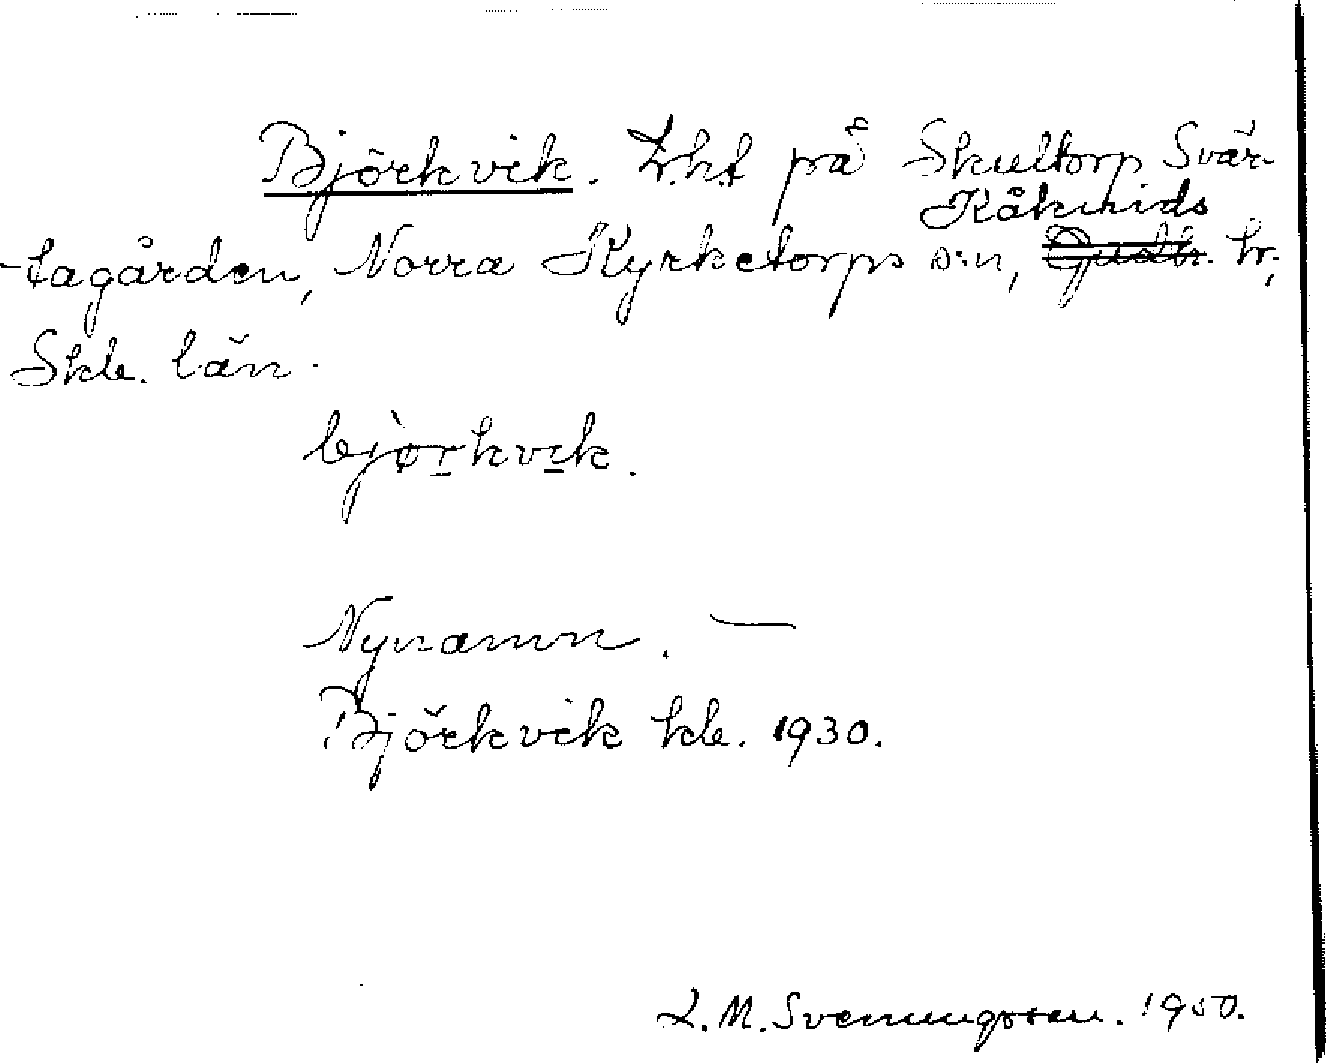 Björkvik. Lht på Skultorp Svär-
Kåkinds
-tagården, Norra Kyrketorps s:n, Gudh. hr,
Skb. län.
bjørkvik.
Nynamn. —
Björkvik kb. 1930.
L. M. Svenungsson. 1950.